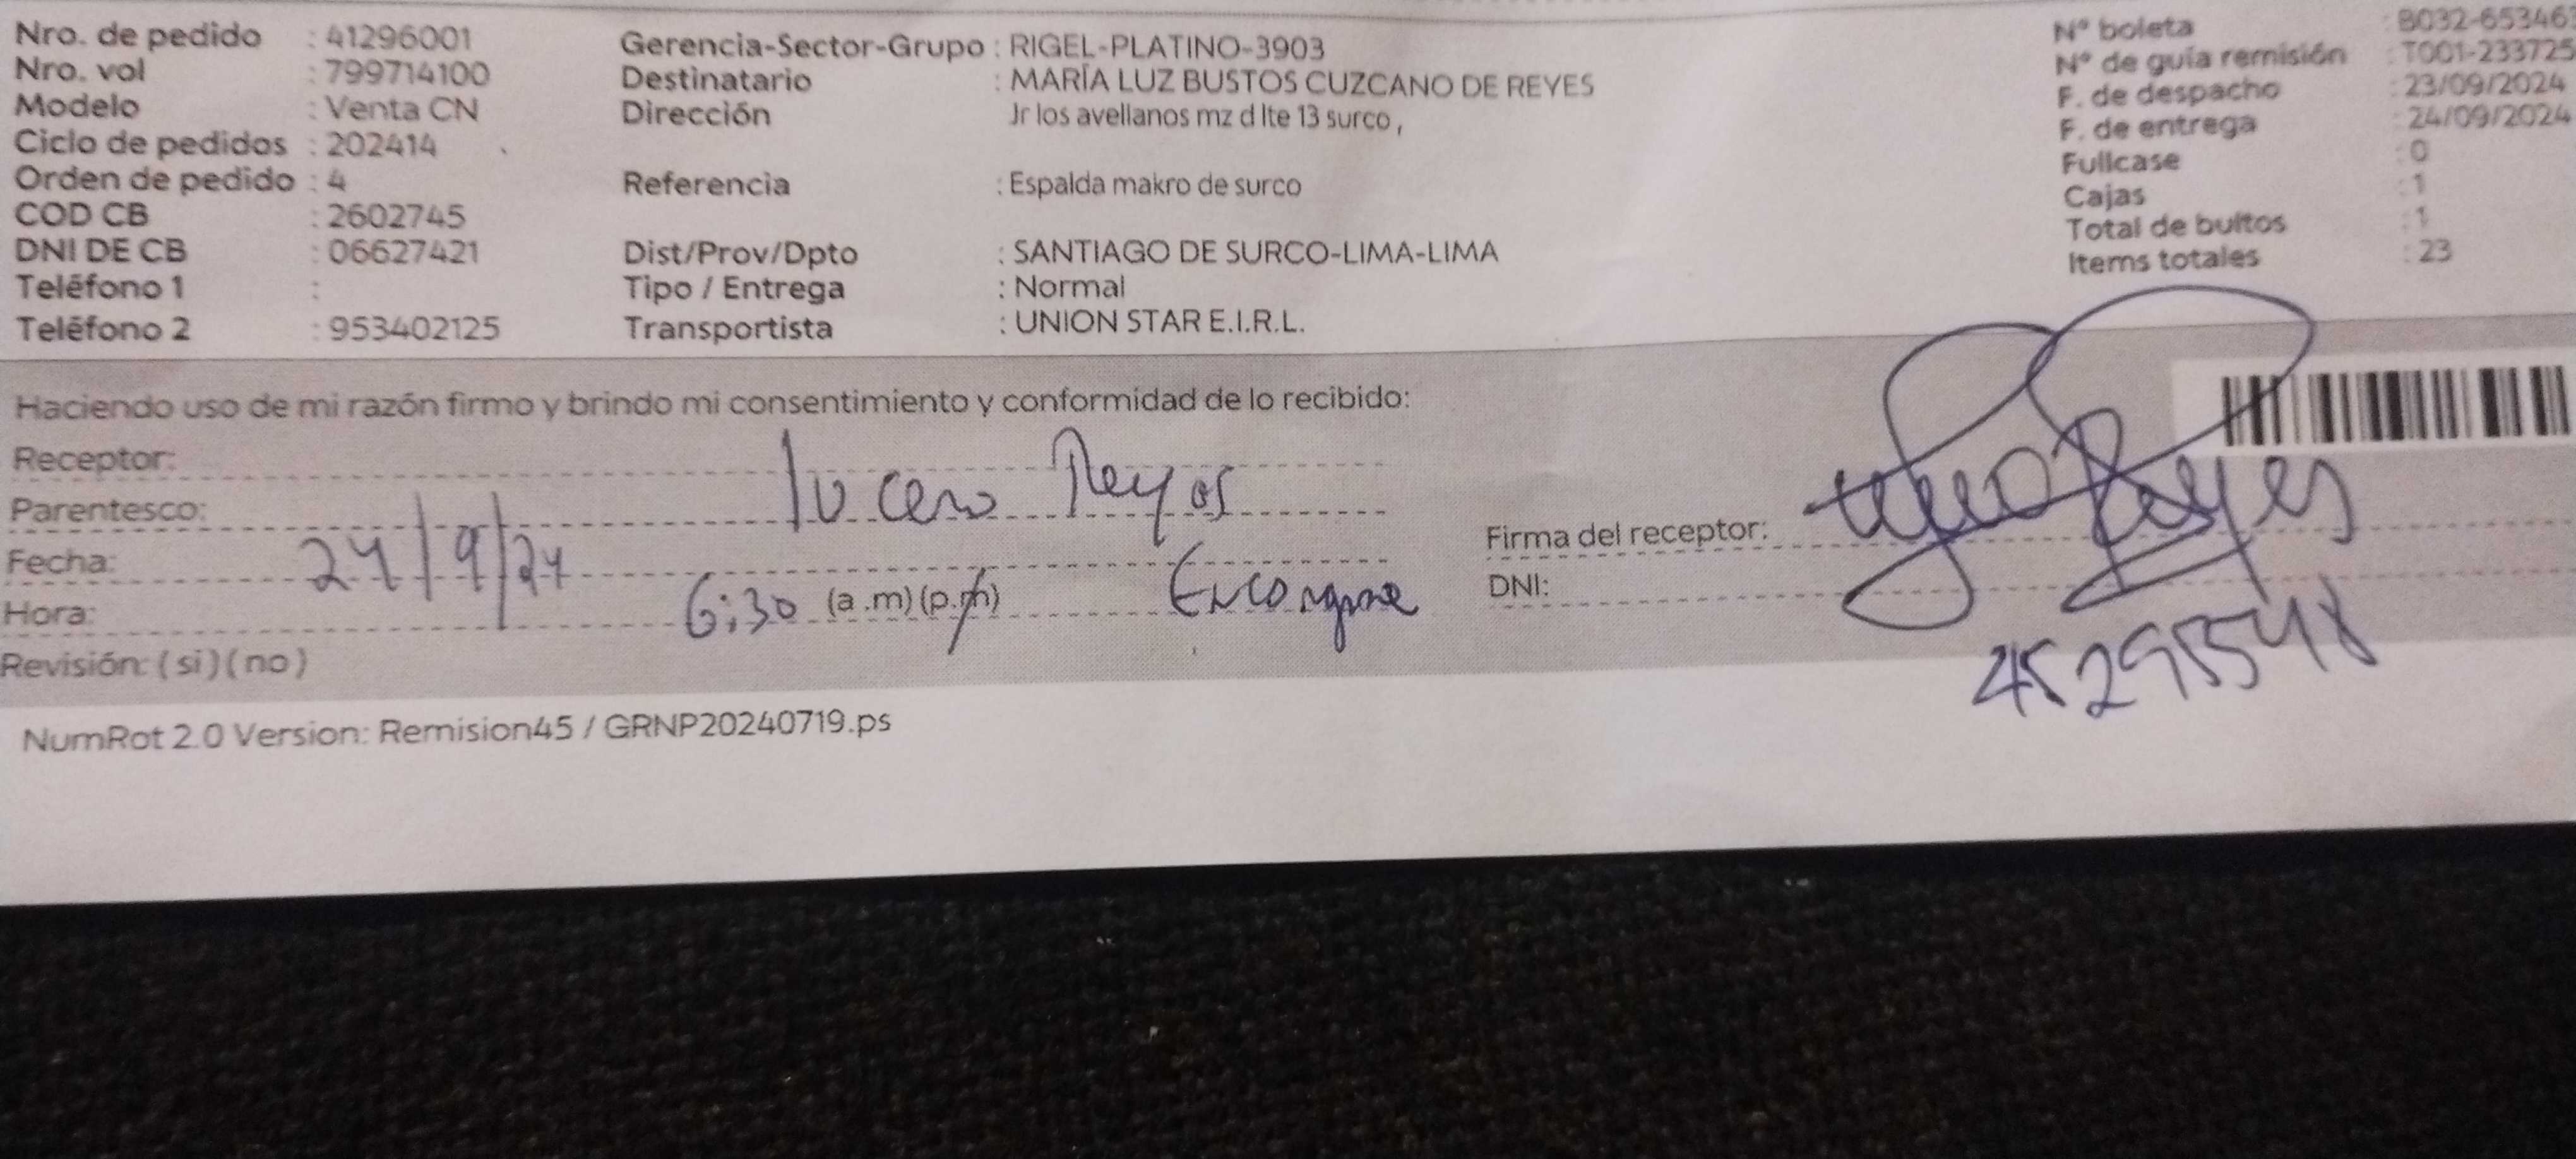 Nro. de pedido : 41296001
Nro. vol : 799714100
Modelo : Venta CN
Ciclo de pedidos : 202414
Orden de pedido : 4
COD CB : 2602745
DNI DE CB : 06627421
Teléfono 1 :
Teléfono 2 : 953402125
Gerencia-Sector-Grupo : RIGEL-PLATINO-3903
Destinatario : MARÍA LUZ BUSTOS CUZCANO DE REYES
Dirección Jr los avellanos mz d lte 13 surco ,
Referencia : Espalda makro de surco
Dist/Prov/Dpto : SANTIAGO DE SURCO-LIMA-LIMA
Tipo / Entrega : Normal
Transportista : UNION STAR E.I.R.L.
Nº boleta : B032-65346
Nº de guía remisión : T001-233725
F. de despacho : 23/09/2024
F. de entrega : 24/09/2024
Fullcase : 0
Cajas : 1
Total de bultos : 1
Items totales : 23
Haciendo uso de mi razón firmo y brindo mi consentimiento y conformidad de lo recibido:
Receptor: lucero Reyes
Parentesco:
Fecha: 24/9/24
Hora: 6:30 (a .m) (p.m)
Revisión: ( si ) ( no )
Firma del receptor: Reyes
DNI:
NumRot 2.0 Version: Remision45 / GRNP20240719.ps